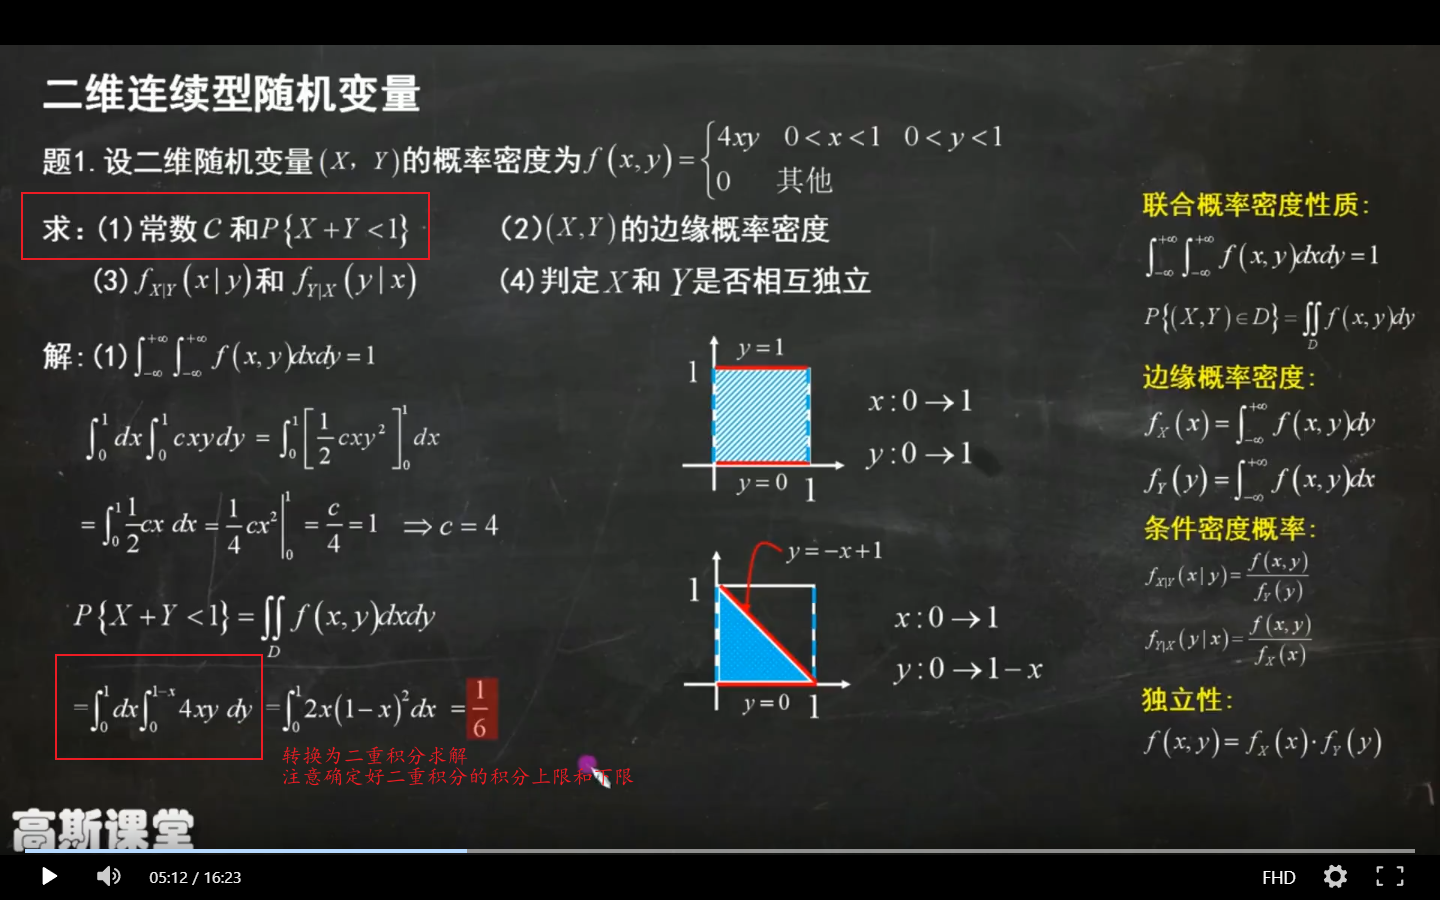 二维连续型随机变量
题1.设二维随机变量(X，Y)的概率密度为f(x,y)={4xy 0<x<1 0<y<1
0 其他
求:(1)常数C和P{X+Y<1} (2)(X,Y)的边缘概率密度
(3)f_{X|Y}(x|y)和 f_{Y|X}(y|x) (4)判定X和Y是否相互独立
解:(1)∫_{-∞}^{+∞}∫_{-∞}^{+∞} f(x,y)dxdy=1
∫_0^1 dx∫_0^1 cxydy = ∫_0^1 [1/2 cxy²]_0^1 dx
=∫_0^1 1/2 cx dx = 1/4 cx²|_0^1 = c/4 = 1 ⇒ c = 4
P{X+Y<1}=∬_D f(x,y)dxdy
=∫_0^1 dx∫_0^{1-x} 4xy dy =∫_0^1 2x(1-x)²dx = 1/6
转换为二重积分求解
注意确定好二重积分的积分上限和下限
y=1
1
x:0→1
y:0→1
y=0 1
y=-x+1
1
x:0→1
y:0→1-x
y=0 1
联合概率密度性质:
∫_{-∞}^{+∞}∫_{-∞}^{+∞} f(x,y)dxdy=1
P{(X,Y)∈D}=∬_D f(x,y)dy
边缘概率密度:
f_X(x)=∫_{-∞}^{+∞} f(x,y)dy
f_Y(y)=∫_{-∞}^{+∞} f(x,y)dx
条件密度概率:
f_{X|Y}(x|y)=f(x,y)/f_Y(y)
f_{Y|X}(y|x)=f(x,y)/f_X(x)
独立性:
f(x,y)=f_X(x)·f_Y(y)
高斯课堂
05:12 / 16:23
FHD